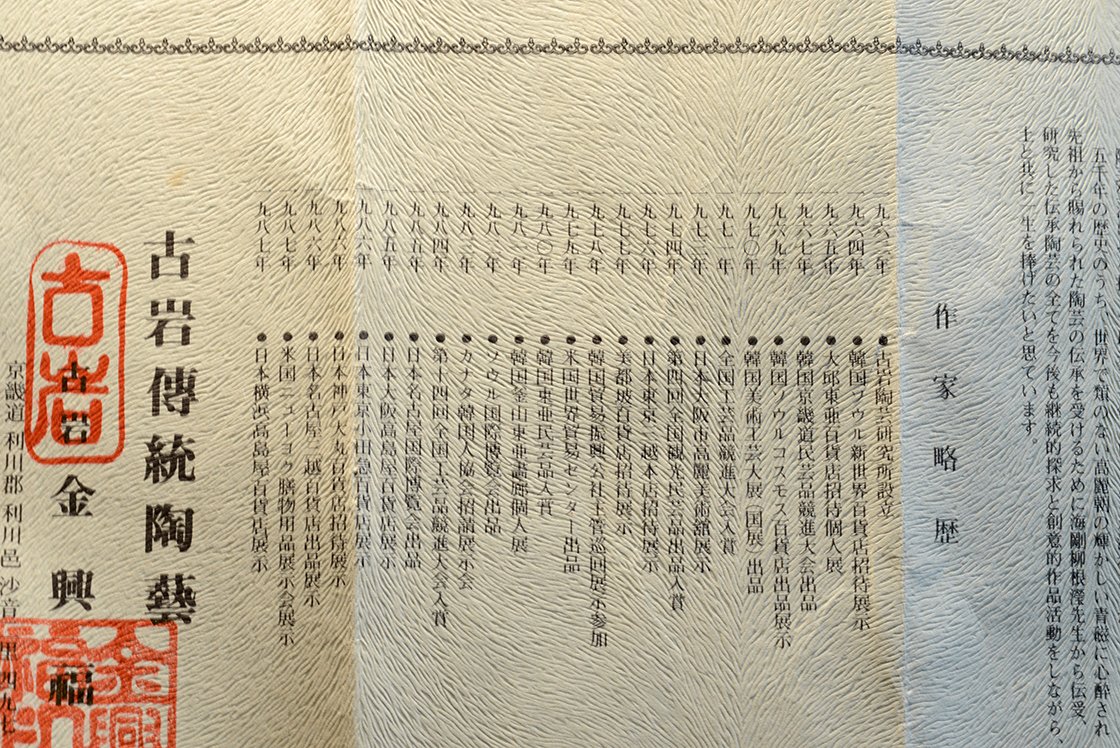 五千年の歴史のうち、世界で類のない高麗朝の輝かしい青磁に心酔され
先祖から賜れられた陶芸の伝承を受けるために海剛柳根瀅先生から伝受、
研究した伝承陶芸の全てを今後も継続的探求と創意的作品活動をしながら、
土と共に一生を捧げたいと思ています。
作家略歴
●古岩陶芸研究所設立
九六四年 ●韓国ソウル新世界百貨店招待展示
九六五年 ●大邱東亜百貨店招待個人展
九六七年 ●韓国京畿道民芸品競進大会出品
九六九年 ●韓国ソウルコスモス百貨店出品展示
九七〇年 ●韓国美術工芸大展(国展)出品
九七一年 ●全国工芸品競進大会入賞
●日本大阪市高麗美術舘展示
九七四年 ●第四回全国観光民芸品出品入賞
九七六年 ●日本東京三越本店招待展示
九七七年 ●美都坡百貨店招待展示
九七八年 ●韓国貿易振興公社主管巡回展示参加
九七九年 ●米国世界貿易センター出品
九八〇年 ●韓国東亜民芸品大賞
●韓国釜山東亜画廊個人展
●ソウル国際博覧会出品
●カナダ韓国人協会招請展示会
九八四年 ●第十四回全国工芸品競進大会入賞
九八五年 ●日本名古屋国際博覧会出品
九八五年 ●日本大阪高島屋百貨店展示
九八六年 ●日本東京大出急百貨店展示
九八六年 ●日本神戸大丸百貨店招待展示
九八六年 ●日本名古屋三越百貨店出品展示
九八七年 ●米国ニューヨウク膳物用品展示会展示
九八七年 ●日本横浜高島屋百貨店展示
古岩傳統陶藝
古岩 金興福
京畿道 利川郡 利川邑 沙音里四九七
古岩